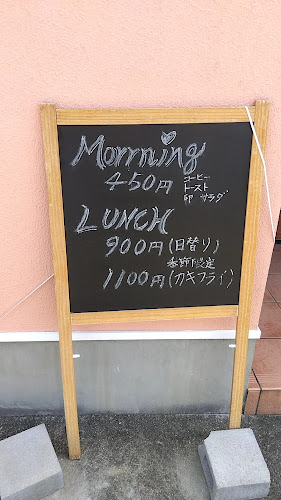 Morrning
450円 コーヒー
トースト
卵 サラダ
LUNCH
900円(日替り)
季節限定
1100円(カキフライ)